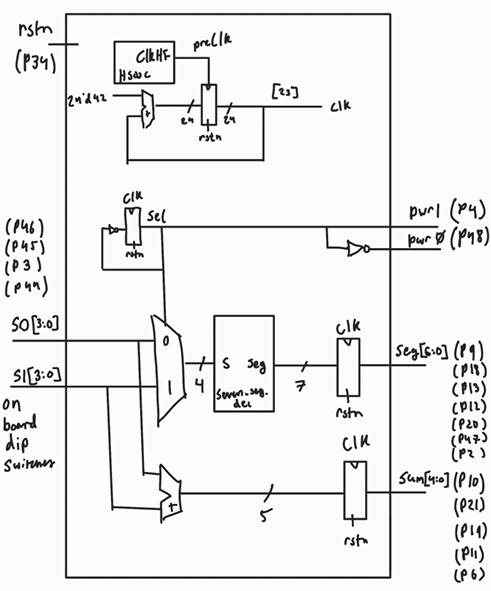 rstn
(P34)
preClk
ClkHF
Hsosc
24'd42
+
24
24
rstn
[23]
Clk
Clk
Sel
rstn
pwr1 (P4)
pwr0 (P48)
(P46)
(P45)
(P3)
(P44)
S0[3:0]
S1[3:0]
on
board
dip
switches
0
1
4
S
Seg
Seven_seg_
dec
7
Clk
rstn
Seg[6:0]
(P9)
(P18)
(P13)
(P12)
(P20)
(P47)
(P2)
+
5
Clk
rstn
Sum[4:0]
(P10)
(P21)
(P19)
(P11)
(P6)